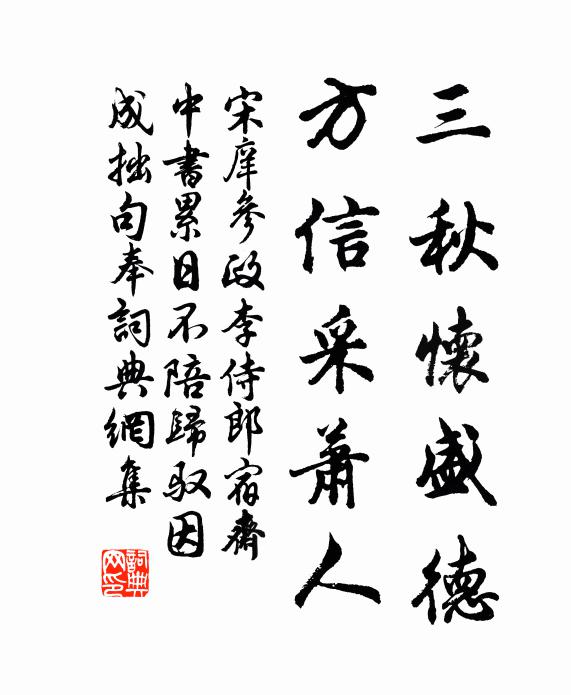 三秋懷盛德
方信采蕭人
宋庠參政李侍郎宿齋
中書累日不陪歸馭因
成拙句奉詞典網集
詞典網印